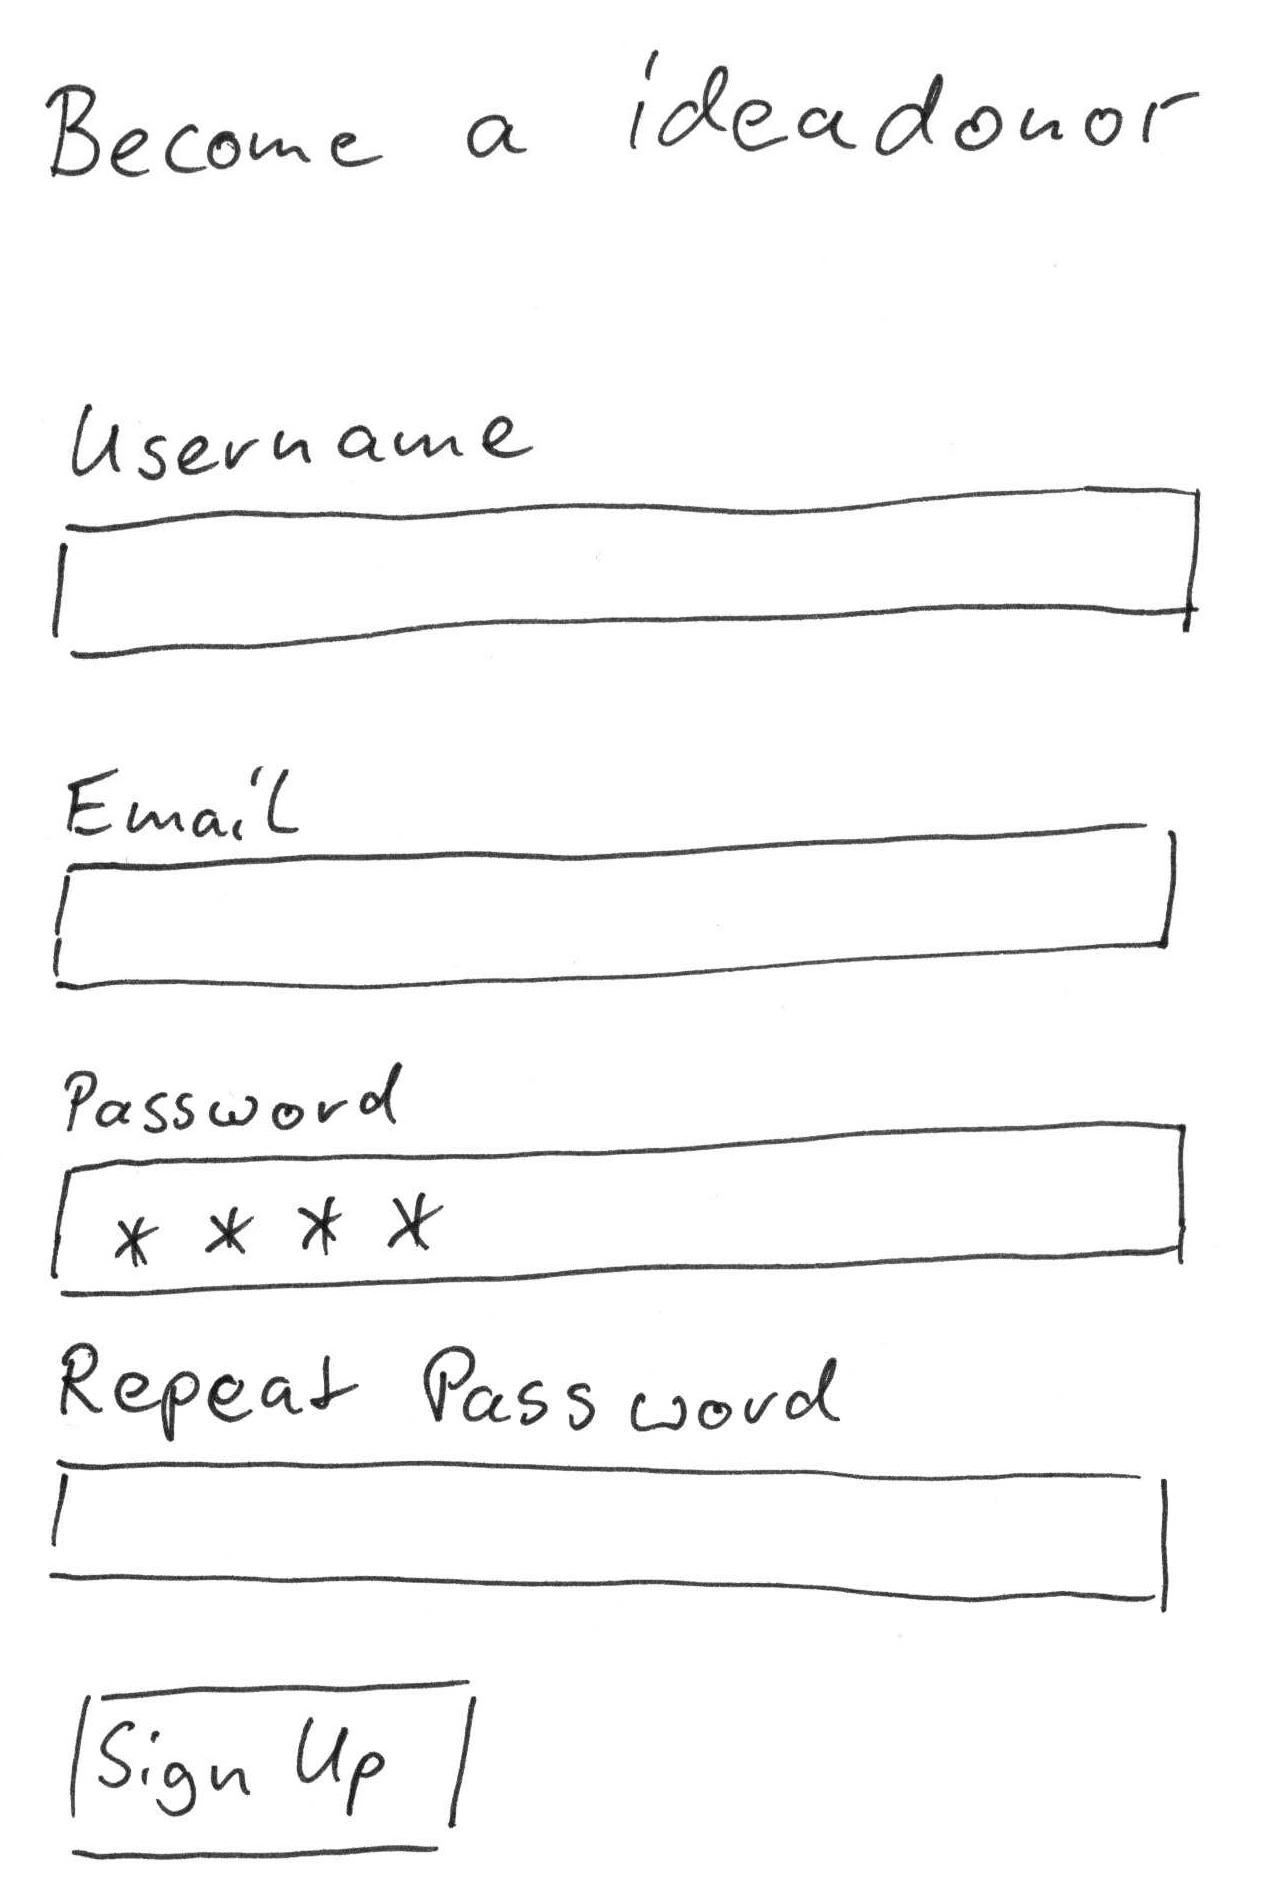 Become a ideadonor
Username
Email
Password
* * * *
Repeat Password
Sign Up